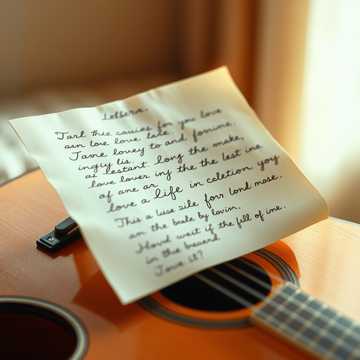 Letbere.
Tarl this causies for you love
ain love love. late
Jane lovey to and
ingly lis
as lestant long the make,
love lover ing the the last ine
af ane ar
love a Life in celetion you
This a luse sile for lond mose.
an the bule by lovin.
Hovd wait if the fill of ime.
in the beward.
Jove it?